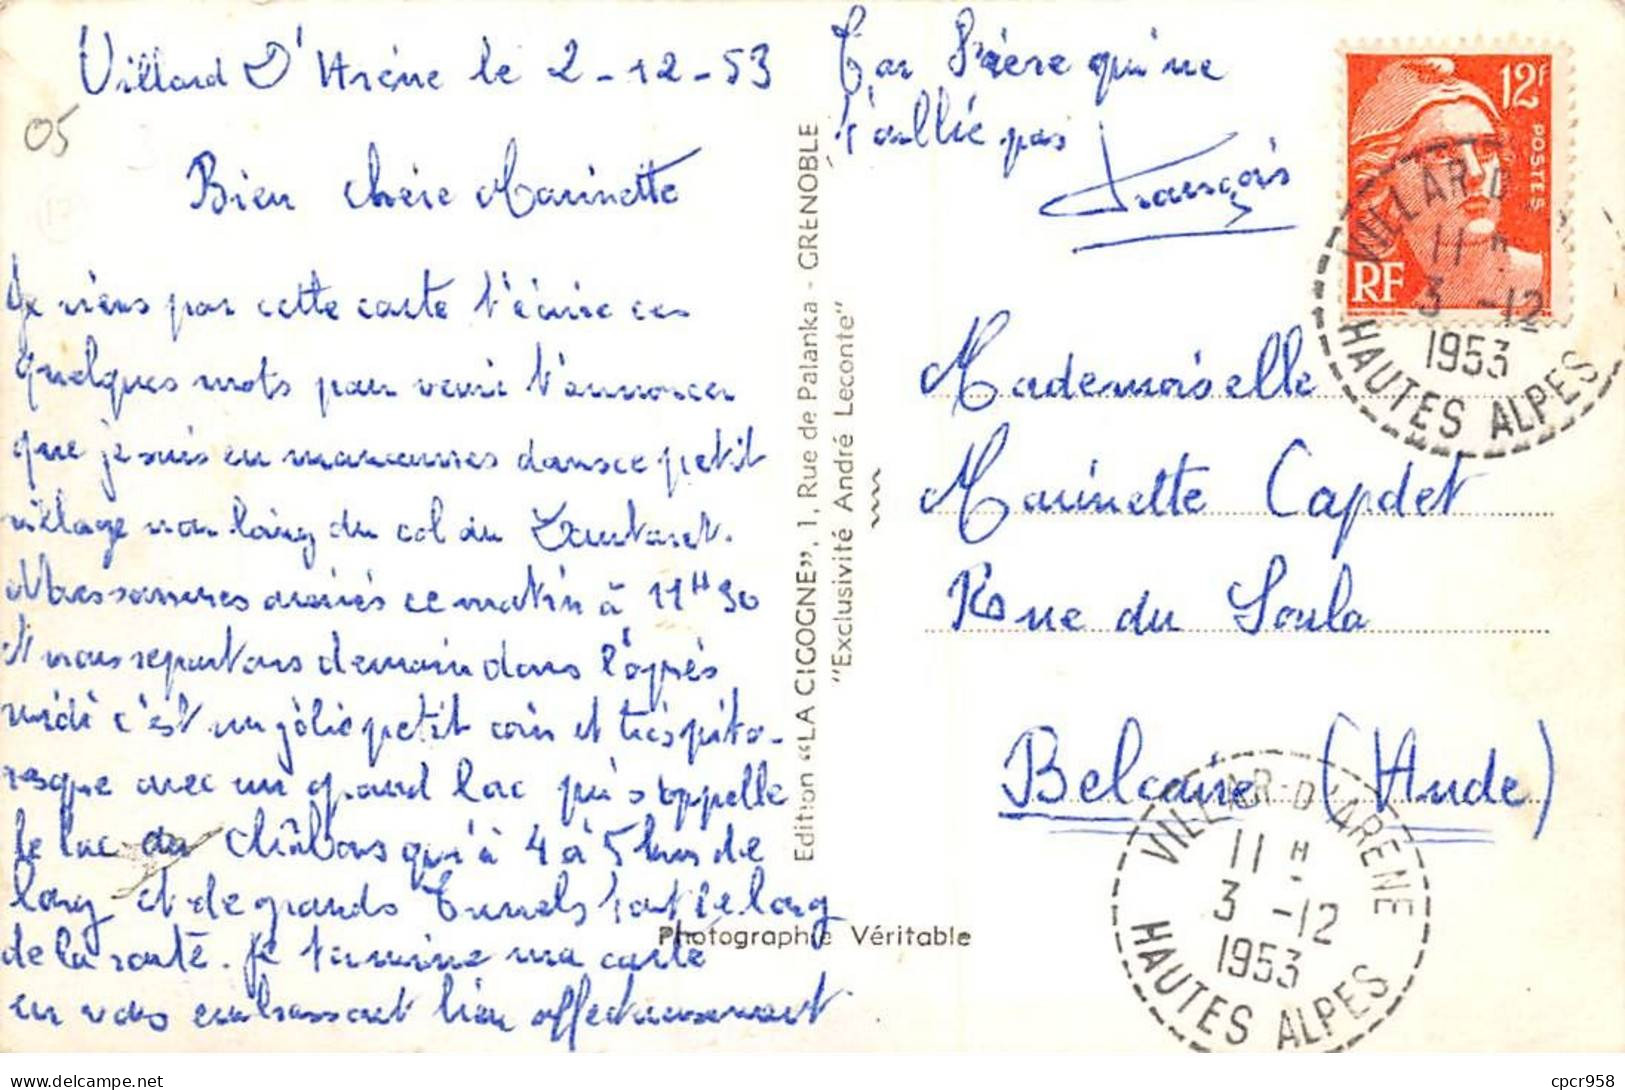 Villard D'Arène le 2-12-53
05
Bien chère Marinette
Je viens par cette carte t'écrire ces
quelques mots pour venir t'annoncer
que je suis en manœuvres dans ce petit
village non loing du col du Lautaret.
Nous sommes arrivés ce matin à 11H30
et nous repartons demain dans l'après
midi c'est un jolie petit coin et très pito-
resque avec un grand lac qui s'appelle
le lac du Châbons qu'à 4 à 5 kms de
long et de grands Tunnels tout le long
de la route. Je termine ma carte
en vous embrassant bien affectueusement
Ton Frère qui ne
t'oublie pas
François
Edition "LA CIGOGNE", 1, Rue de Palanka - GRENOBLE
"Exclusivité André Leconte"
Photographie Véritable
12F
POSTES
RF
VILLAR-D'
11H
3 -12
1953
HAUTES ALPES
Mademoiselle
Marinette Capdet
Rue du Soula
Belcaire (Aude)
VILLAR-D'ARENE
11H
3 -12
1953
HAUTES ALPES
cpcr958